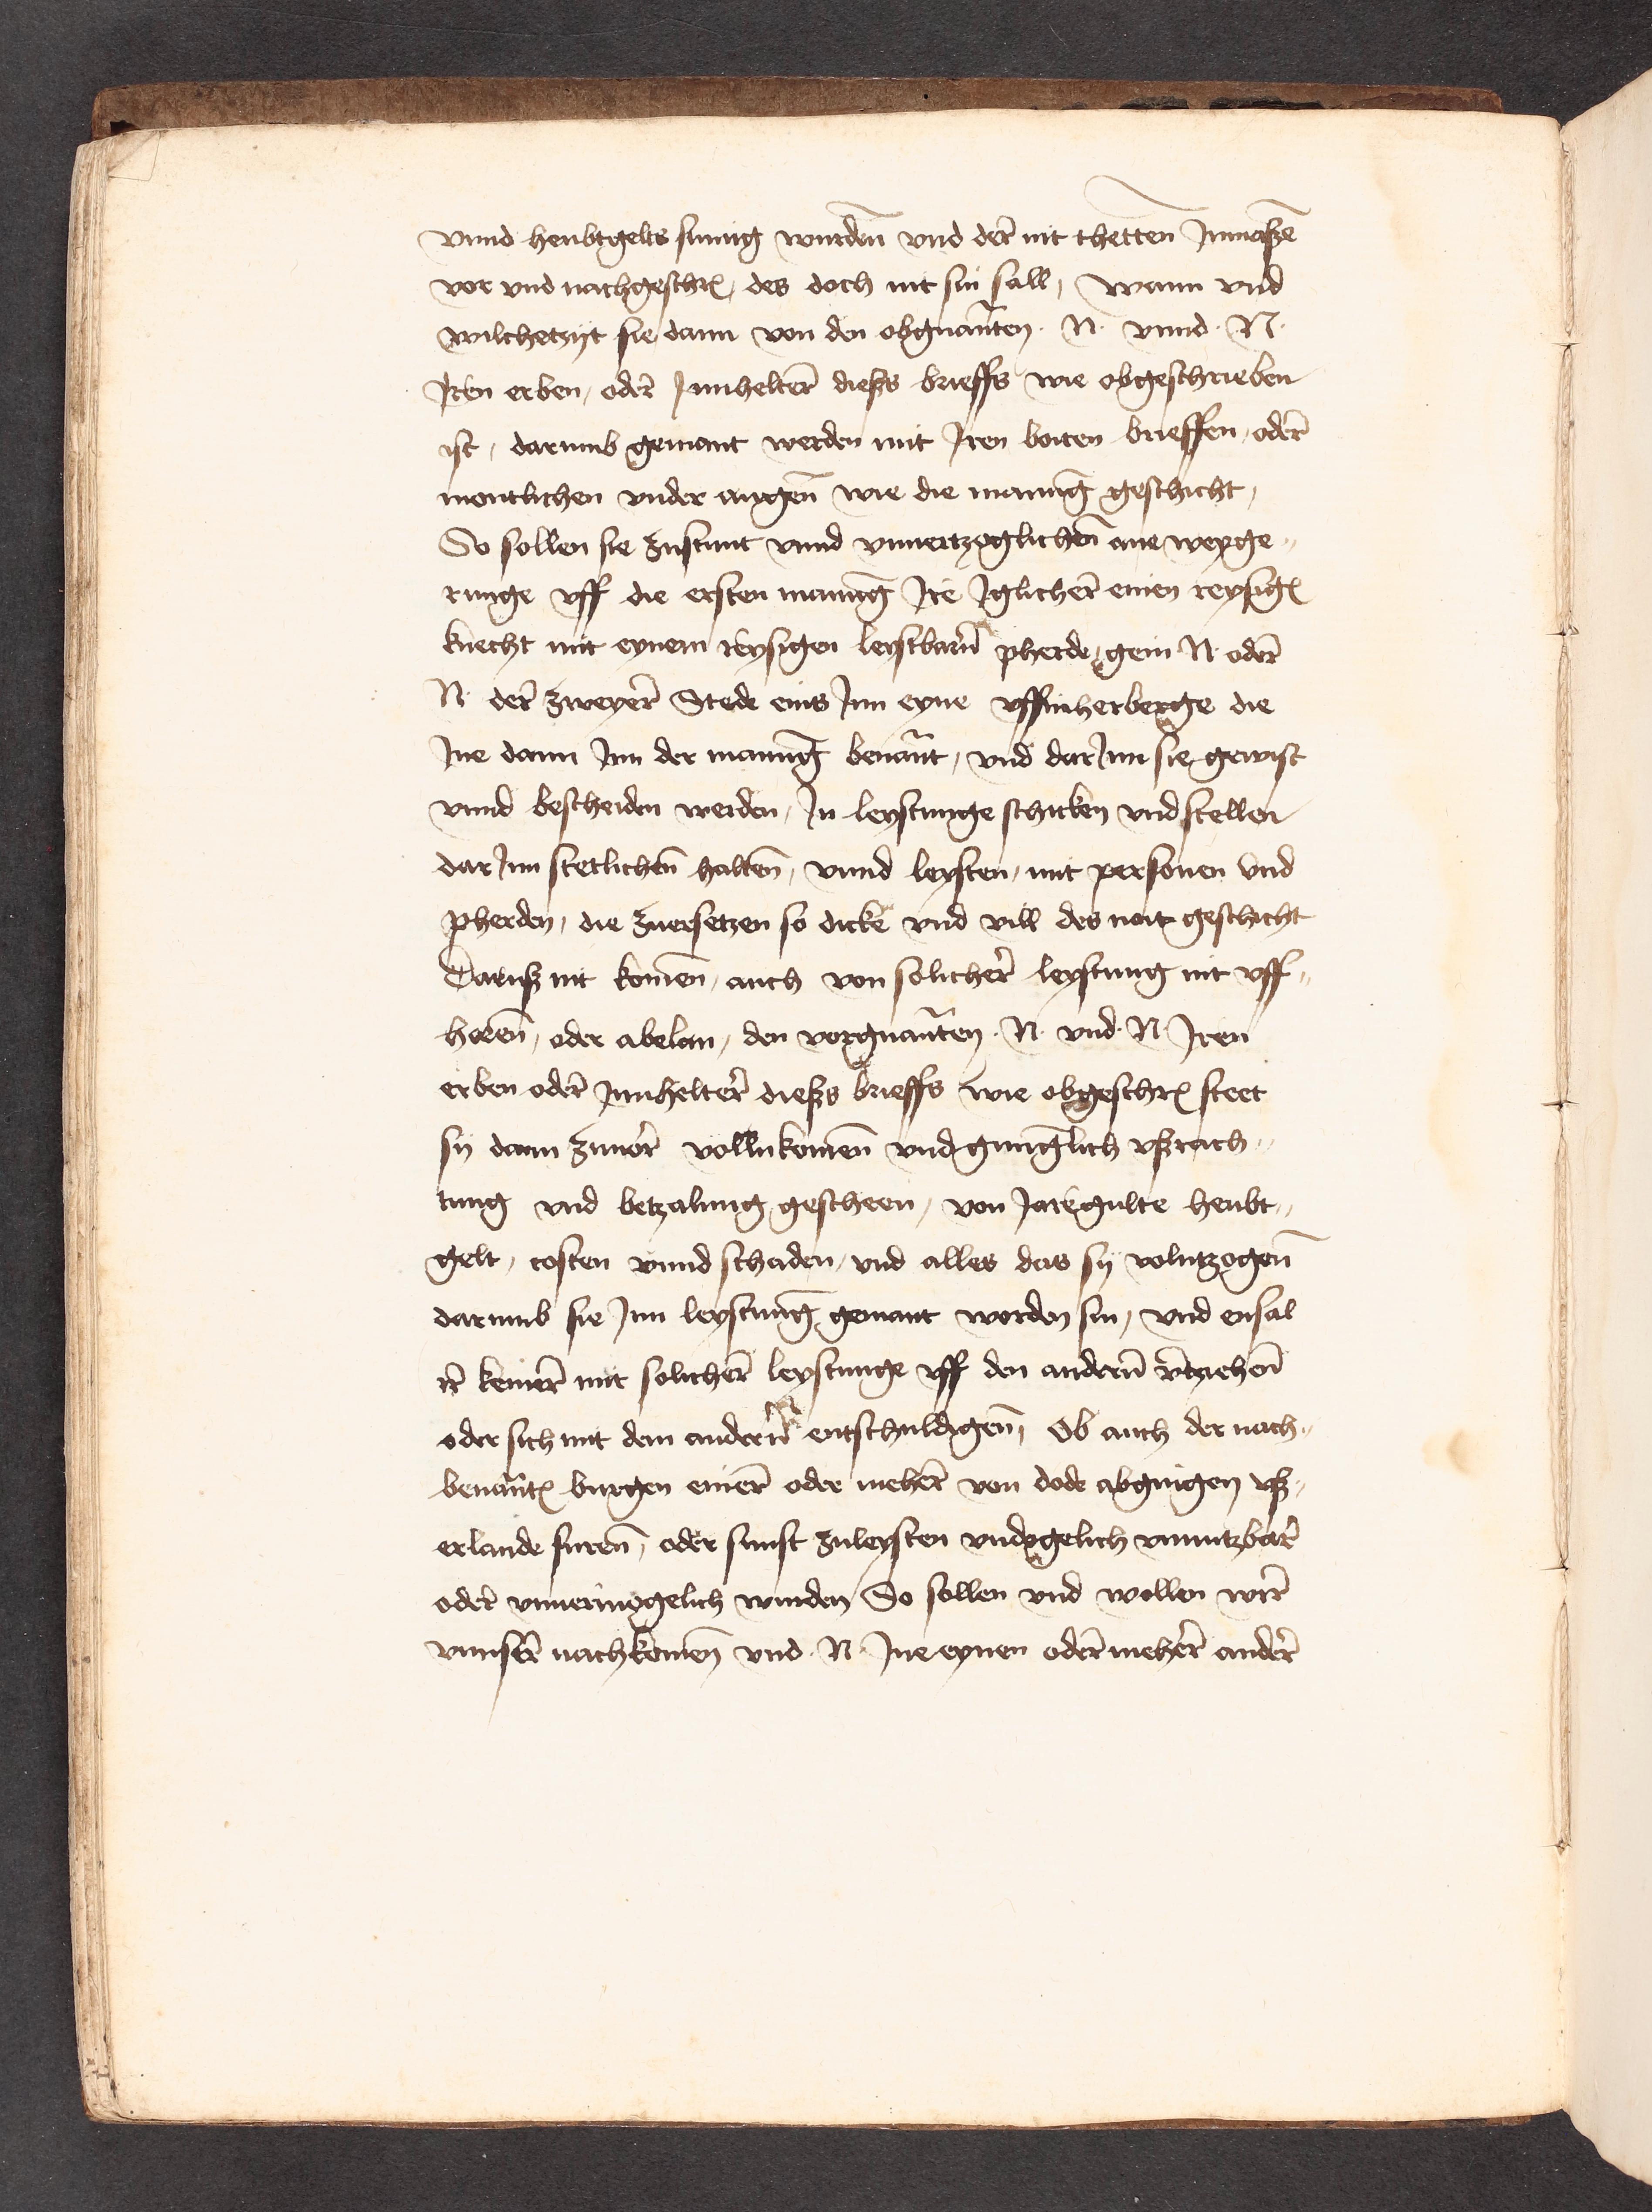 vnnd heubtgelts sumig wurden̄ vnd der̄ nit thetten Jnmaßē
vor vnd nachgeschr̄, des doch nit sin sall, Wann vnd
wilchetzijt sie dann von den obgnan̄ten · N · vnnd · N ·
Jren erben, oder̄ Jnnhelter̄ dießs brieffs wie obgeschrieben
ist, darumb gemant werden mit Jren boten brieffen, oder̄
montlichen vnder augen̄ wie die manunḡ geschicht,
So sollen sie zustunt vnnd vnuertzoglichen̄ ane weyge„
runge vff die ersten manunḡ Jre Jglicher̄ einen reysiḡ
knecht mit eynem reysigen leystbarn̄ pherde, gein N · oder̄
N · der̄ zweyer̄ Stede eins Jnn eyne vffinherberge die
Jne dann Jnn der manunḡ benan̄t, vnd dar Jnn sie gewist
vnnd bescheiden werden, Jn leystunge schicken vnd stellen
dar Jnn stetlichen̄ halten̄, vnnd leysten, mit personen vnd
pherden, die zuersetzen so dicke vnd vill des noit geschicht
Daruß nit komen̄, auch von solicher̄ leystung nit vff„
horen̄, oder abelan, den vorgnan̄ten · N · vnd · N Jren
erben oder̄ Jnnhelter̄ dießs brieffs wie obgeschr̄ steet
sy dann zuuor̄ vollnkomen̄ vnd gunglich vßrach„
tung vnd betzalung gescheen, von Jaregulte heubt„
gelt, costen vnnd schaden, vnd alles das sy volntzogen̄
darumb sie Jnn leystunḡ gemant worden sin, vnd ensal
ir̄ keiner̄ mit solicher̄ leystunge vff den andern̄ v̄tziehen̄
oder sich mit dem andern̄ entschuldigen̄, Ob auch der nach„
benan̄t̄ burgen einer̄ oder meher̄ von dode abgingen vß„
erlande furen̄, oder sunst zuleysten vndogelich vnnutzbar̄
oder̄ vnuermogelich wurden So sollen vnd wollen wir̄
vnnser̄ nachkomen̄ vnd · N · Jne eynen oder̄ meher̄ ander̄